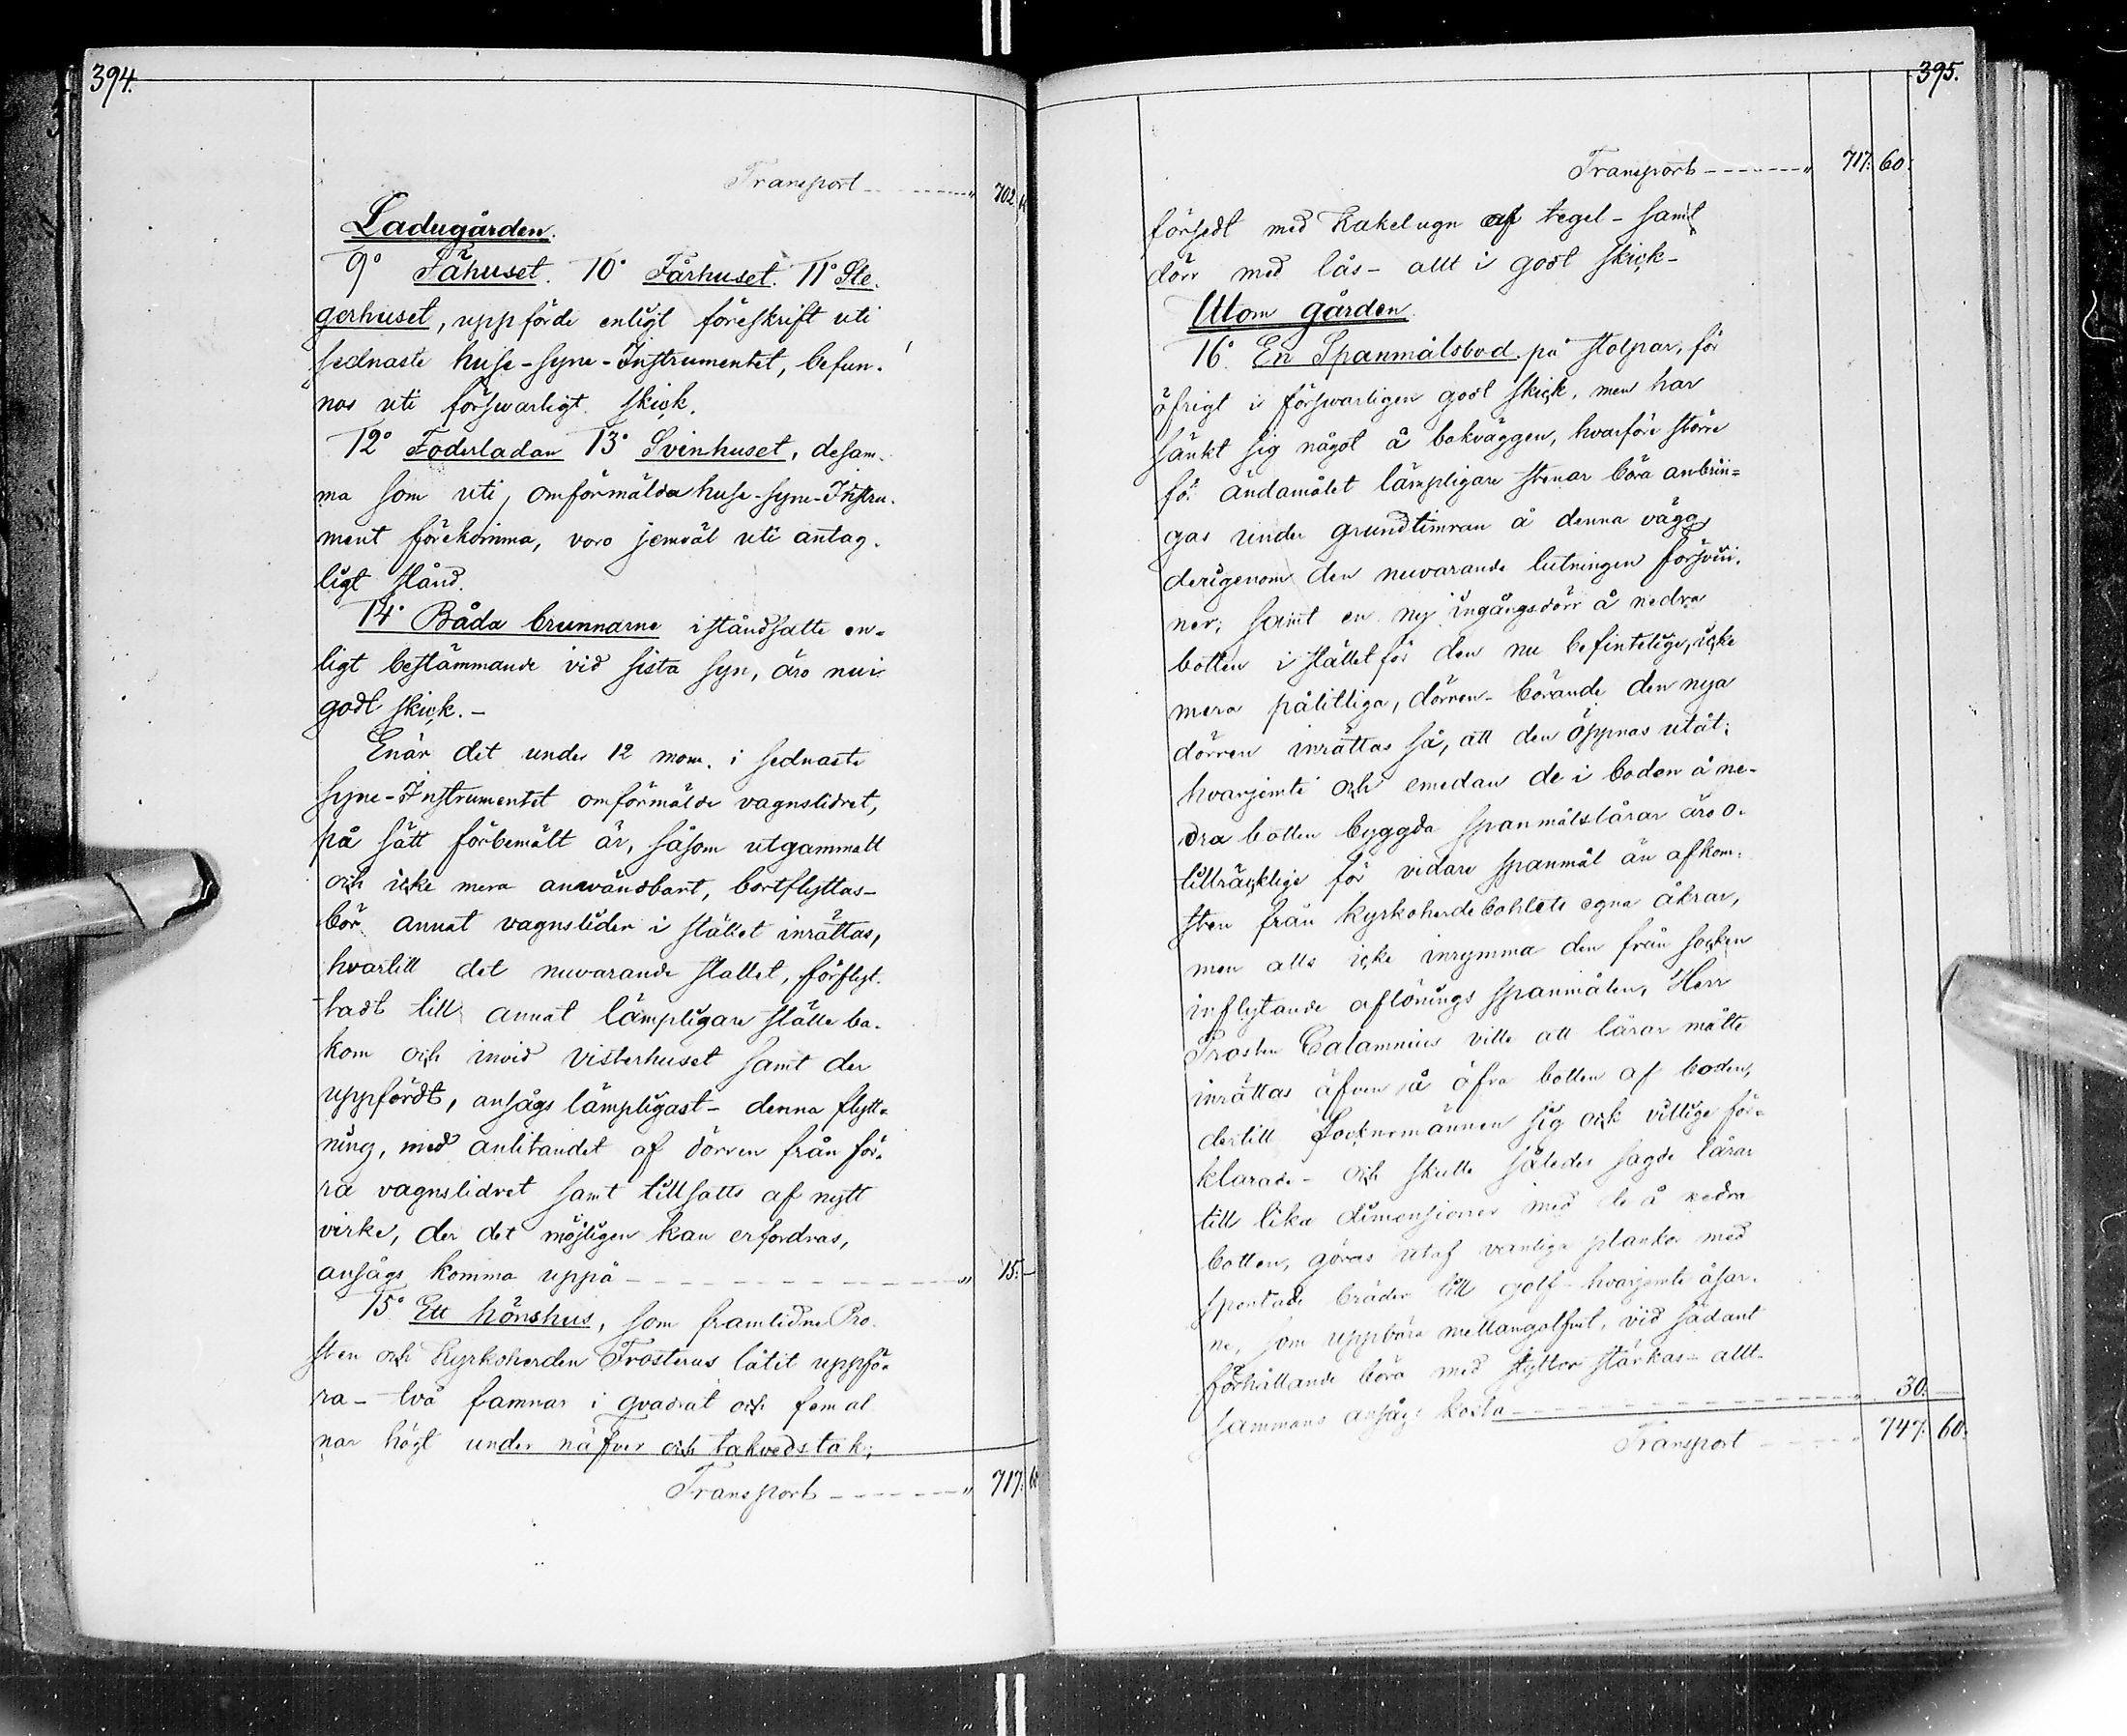 394.
Transport - - - - - " 702. 60
Ladugården.
9° Fähuset. 10° Fårhuset. 11° Ste-
gerhuset, uppförde enligt föreskrift uti
sednaste huse-syne-Instrumentet, befun-
nos uti förswarligt skick.
12° Foderladan 13° Svinhuset, desam-
ma som uti omförmälda huse-syne-Instru-
ment förekomma, voro jemväl uti antag-
ligt stånd.
14° Båda brunnarne iståndsatte en-
ligt bestämmande vid sista syn, äro nu i
godt skick. -
Enär det under 12 mom. i sednaste
syne-Instrumentet omförmälde vagnslidret,
på sätt förbemält är, såsom utgammalt
och icke mera anwändbart, bortflyttas -
bör annat vagnslider i stället inrättas,
hvartill det nuvarande stallet, förflyt-
tadt till annat lämpligare ställe ba-
kom och invid visterhuset samt der
uppfördt, ansågs lämpligast - denna flytt-
ning, med anlitandet af dörren från för-
ra vagnslidret samt tillsatts af nytt
virke, der det möjligen kan erfordras,
ansågs komma uppå - - - - - - " 15. -
15° Ett hönshus, som framlidne Pro-
sten och Kyrkoherden Frosterus låtit uppfö-
ra - två famnar i qvadrat och fem al
nar högt under näfver och takvedstak;
Transport - - - - - " 717. 60
395.
Transport - - - - - " 717. 60.
försedt med Kakelugn af tegel - samt
dörr med lås - allt i godt skick -
Utom gården.
16° En Spanmålsbod på stolpar, för
öfrigt i förswarligen godt skick, men har
sänkt sig något å bakväggen, hvarföre större
för ändamålet lämpligare stenar böra anbrin-
gas under grundtimran å denna vägg,
derigenom den nuvarande lutningen försvin-
ner; samt en ny ingångsdörr å nedra
botten i stället för den nu befinteliga, icke
mera pålitliga, dörren - börande den nya
dörren inrättas så, att den öppnas utåt;
hvarjemte och emedan de i boden å ne-
dra botten byggda spanmålslårar äro o-
tillräcklige för vidare spanmål än afkom-
sten från Kyrkoherdebohlets egna åkrar,
men alls icke inrymma den från socken
inflytande aflönings spanmålen, Herr
Prosten Calamnius ville att lårar måtte
inrättas äfven å öfra botten af boden,
dertill Socknemännen sig och villige för-
klarade - och skulle således sagde lårar
till lika dimensioner med de å nedra
botten, göras utaf vanliga plankor med
spontade bräder till golf - hvarjemte åsar-
ne, som uppbära mellangolfvet, vid sådant
förhållande böra med styttor stärkas - allt-
sammans ansågs kosta - - - - - - " 30. -
Transport - - - - " 747. 60.